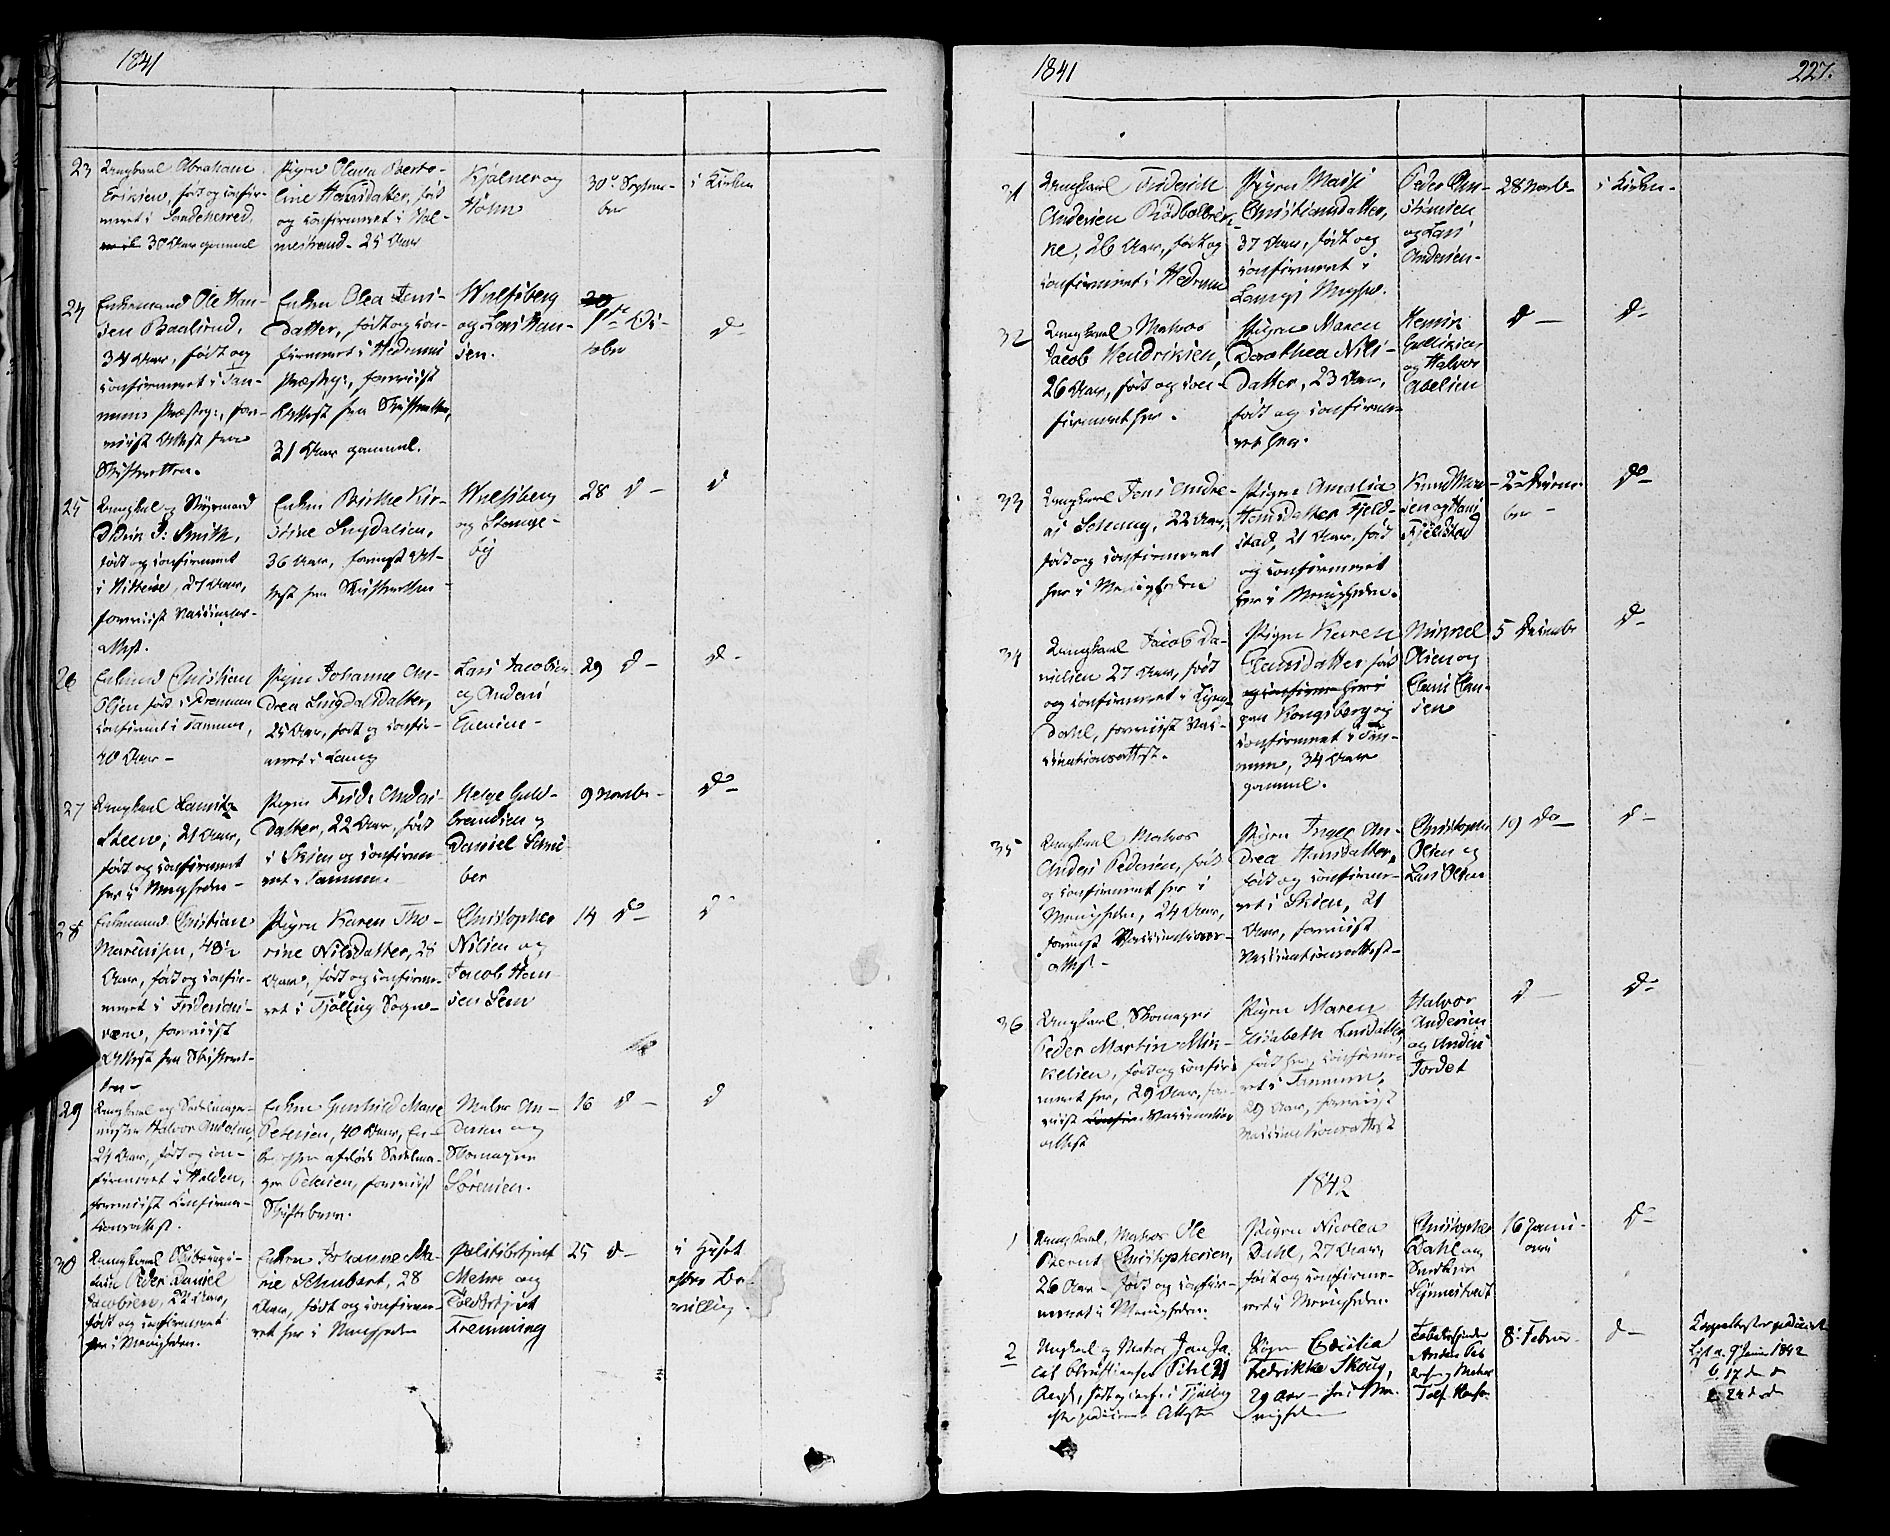 1841
23 Ungkarl Abraham
Eriksen, født og confir-
meret i Sandeherred,
30 Aar gammel
Pigen Olava Berto-
line Hansdatter, født
og confirmeret i Hol-
mestrand. 25 Aar
Kjølner og
Holm
30te Septem-
ber
i Kirken
24 Enkemand Ole Han-
sen Baalsrud,
34 Aar, født og
confirmeret i Tan-
nums Præstegj:, for-
eviist Attest fra
Skifteretten.
Enken Olea Jens-
Datter, født og con-
firmeret i Hedrums
Præstegj:, foreviist
Attest fra Skifteretten,
31 Aar gammel.
Wulfsberg
og Lars Han-
sen.
1ste Oc-
tober
d-
25 Ungkarl og Styrmand
Smith,
født og confirmeret
27 Aar,
foreviist Vaccinations-
attest.
Enken Birthe Kir-
stine Lingdalsen,
36 Aar, foreviist At-
test fra Skifteretten -
Wulfsberg
og Stange-
bye
28 d-
d
26 Enkemd Christian
Olsen født i Drammen
confirmet i Tannum,
40 Aar -
Pigen Johanne An-
drea LingdalsDatter,
25 Aar, født og confir-
meret i Laurvig
Lars Jacobsen
og Anders
Evensen -
29 d-
d-
27 Ungkarl Lauritz
Steen, 21 Aar,
født og confirmeret
her i Menigheden -
Pigen Anders-
datter, 22 Aar, født
i Skien og confirme-
ret i Tannum.
Helge Guld-
brandsen og
Daniel Schrei-
ber
9 Novbr -
do-
28 Enkemand Christian
Mareniusen, 48½
Aar, født og confir-
meret i Friderichs-
værn, foreviist
Attest fra Skifteret-
ten -
Pigen Karen Tho-
rine Nilsdatter, 25
Aar, født og confirme-
ret i Tjølling Sogn -
Christopher
Nilsen og
Jacob Han-
sen Sem
14 do-
d
29 Ungkarl og Sadelmager-
mester Halvor Andersen,
21 Aar, født og con-
firmeret i Halden,
foreviist Confirma-
tionsattest.
Enken Gunhild Marie
Petersen, 40 Aar, En-
ke efter afdøde Sadelma-
ger Petersen, foreviist
Skiftebrev.
Maler An-
dersen og
Skomager
Sørensen.
16 d-
d
30 Ungkarl Skibscapi-
tain Peder Daniel
Jacobsen, 22 Aar,
født og confirmeret
her i Menigheden.
Enken Johanne Ma-
rie Schubert, 28
Aar, født og confirme-
ret her i Menigheden
Politibetjent
Mehre og
Toldbetjent
Fremming
25 d-
i Huset
efter Be-
villing.
1841
227.
31 Ungkarl Friderich
Andersen Rødbolbrek-
ke, 26 Aar, født og
confirmeret i Hedrum
Pigen Maise
Christiansdatter,
37 Aar, født og
confirmeret i
Langs
Peder Chri-
stiansen
og Lars
Andersen -
28 Novb-
i Kirken -
32 Ungkarl Matros
Jacob Hendriksen,
26 Aar, født og con-
firmeret her.
Pigen Maren
Dorothea Nils-
Datter, 23 Aar,
født og confirme-
ret her.
Henrik
Gulliksen
og Halvor
Abelsen
d-
d-
33 Ungkarl Jens Andre-
as Solberg, 22 Aar,
født og confirmeret
her i Menigheden
Pigen Amalia
Hansdatter Fjeld-
stad, 21 Aar, født
og confirmeret
her i Menigheden.
Knud Mad-
sen og Hans
Fjeldstad
2den Decem-
ber -
do-
34 Ungkarl Jacob Da-
nielsen 27 Aar, født
og confirmeret i Lyng-
dahl, foreviist Vac-
cinationsattest.
Pigen Karen
Clausdatter, født
paa Kongsberg og
confirmeret i Tan-
num, 34 Aar
gammel.
Mikkel
Olsen og
Claus Clau-
sen
5 Decembr
d-
35 Ungkarl Matros
Anders Pedersen, født
og confirmeret her i
Menigheden, 24 Aar,
foreviist Vaccinations-
attest -
Pigen Inger An-
drea Hansdatter,
født og confirme-
ret i Skien, 21
Aar, foreviist
Vaccinationsattest -
Christopher
Olsen og
Lars Olsen
19 do
d-
36 Ungkarl, Skomager
Peder Martin Mik-
kelsen, født og confir-
meret her, 29 Aar, for-
eviist Vaccinations
attest
Pigen Maren
Elisabeth Larsdatter,
født her, confirme-
ret i Tannum,
29 Aar, foreviist
Vaccinationsattest
Halvor
Andersen
og Anders
Jordet
d-
d-
1842
1 Ungkarl, Matros Ole
Bernt Christophersen,
26 Aar - født og confir-
meret i Menigheden.
Pigen Nicolea
Dahl, 27 Aar,
født og confirme-
ret i Menigheden.
Christopher
Dahl og
Snedker
Synnestvedt
16 Janu-
ari
d-
2 Ungkarl og Matros Jan Ja-
cob Christiansen Pihl 31
Aar, født og conf. i Tjølling
efter producerede Attester
Pigen Cecilia
Fredrikke Skoug,
29 Aar - her i Me-
nigheden
Anders Pet-
ersen og Maler
Tolf Hansen
8. Februar
d-
Copulationsseddel
Lyst a. 9 Janu 1842
b. 17 d d
c. 24 d d